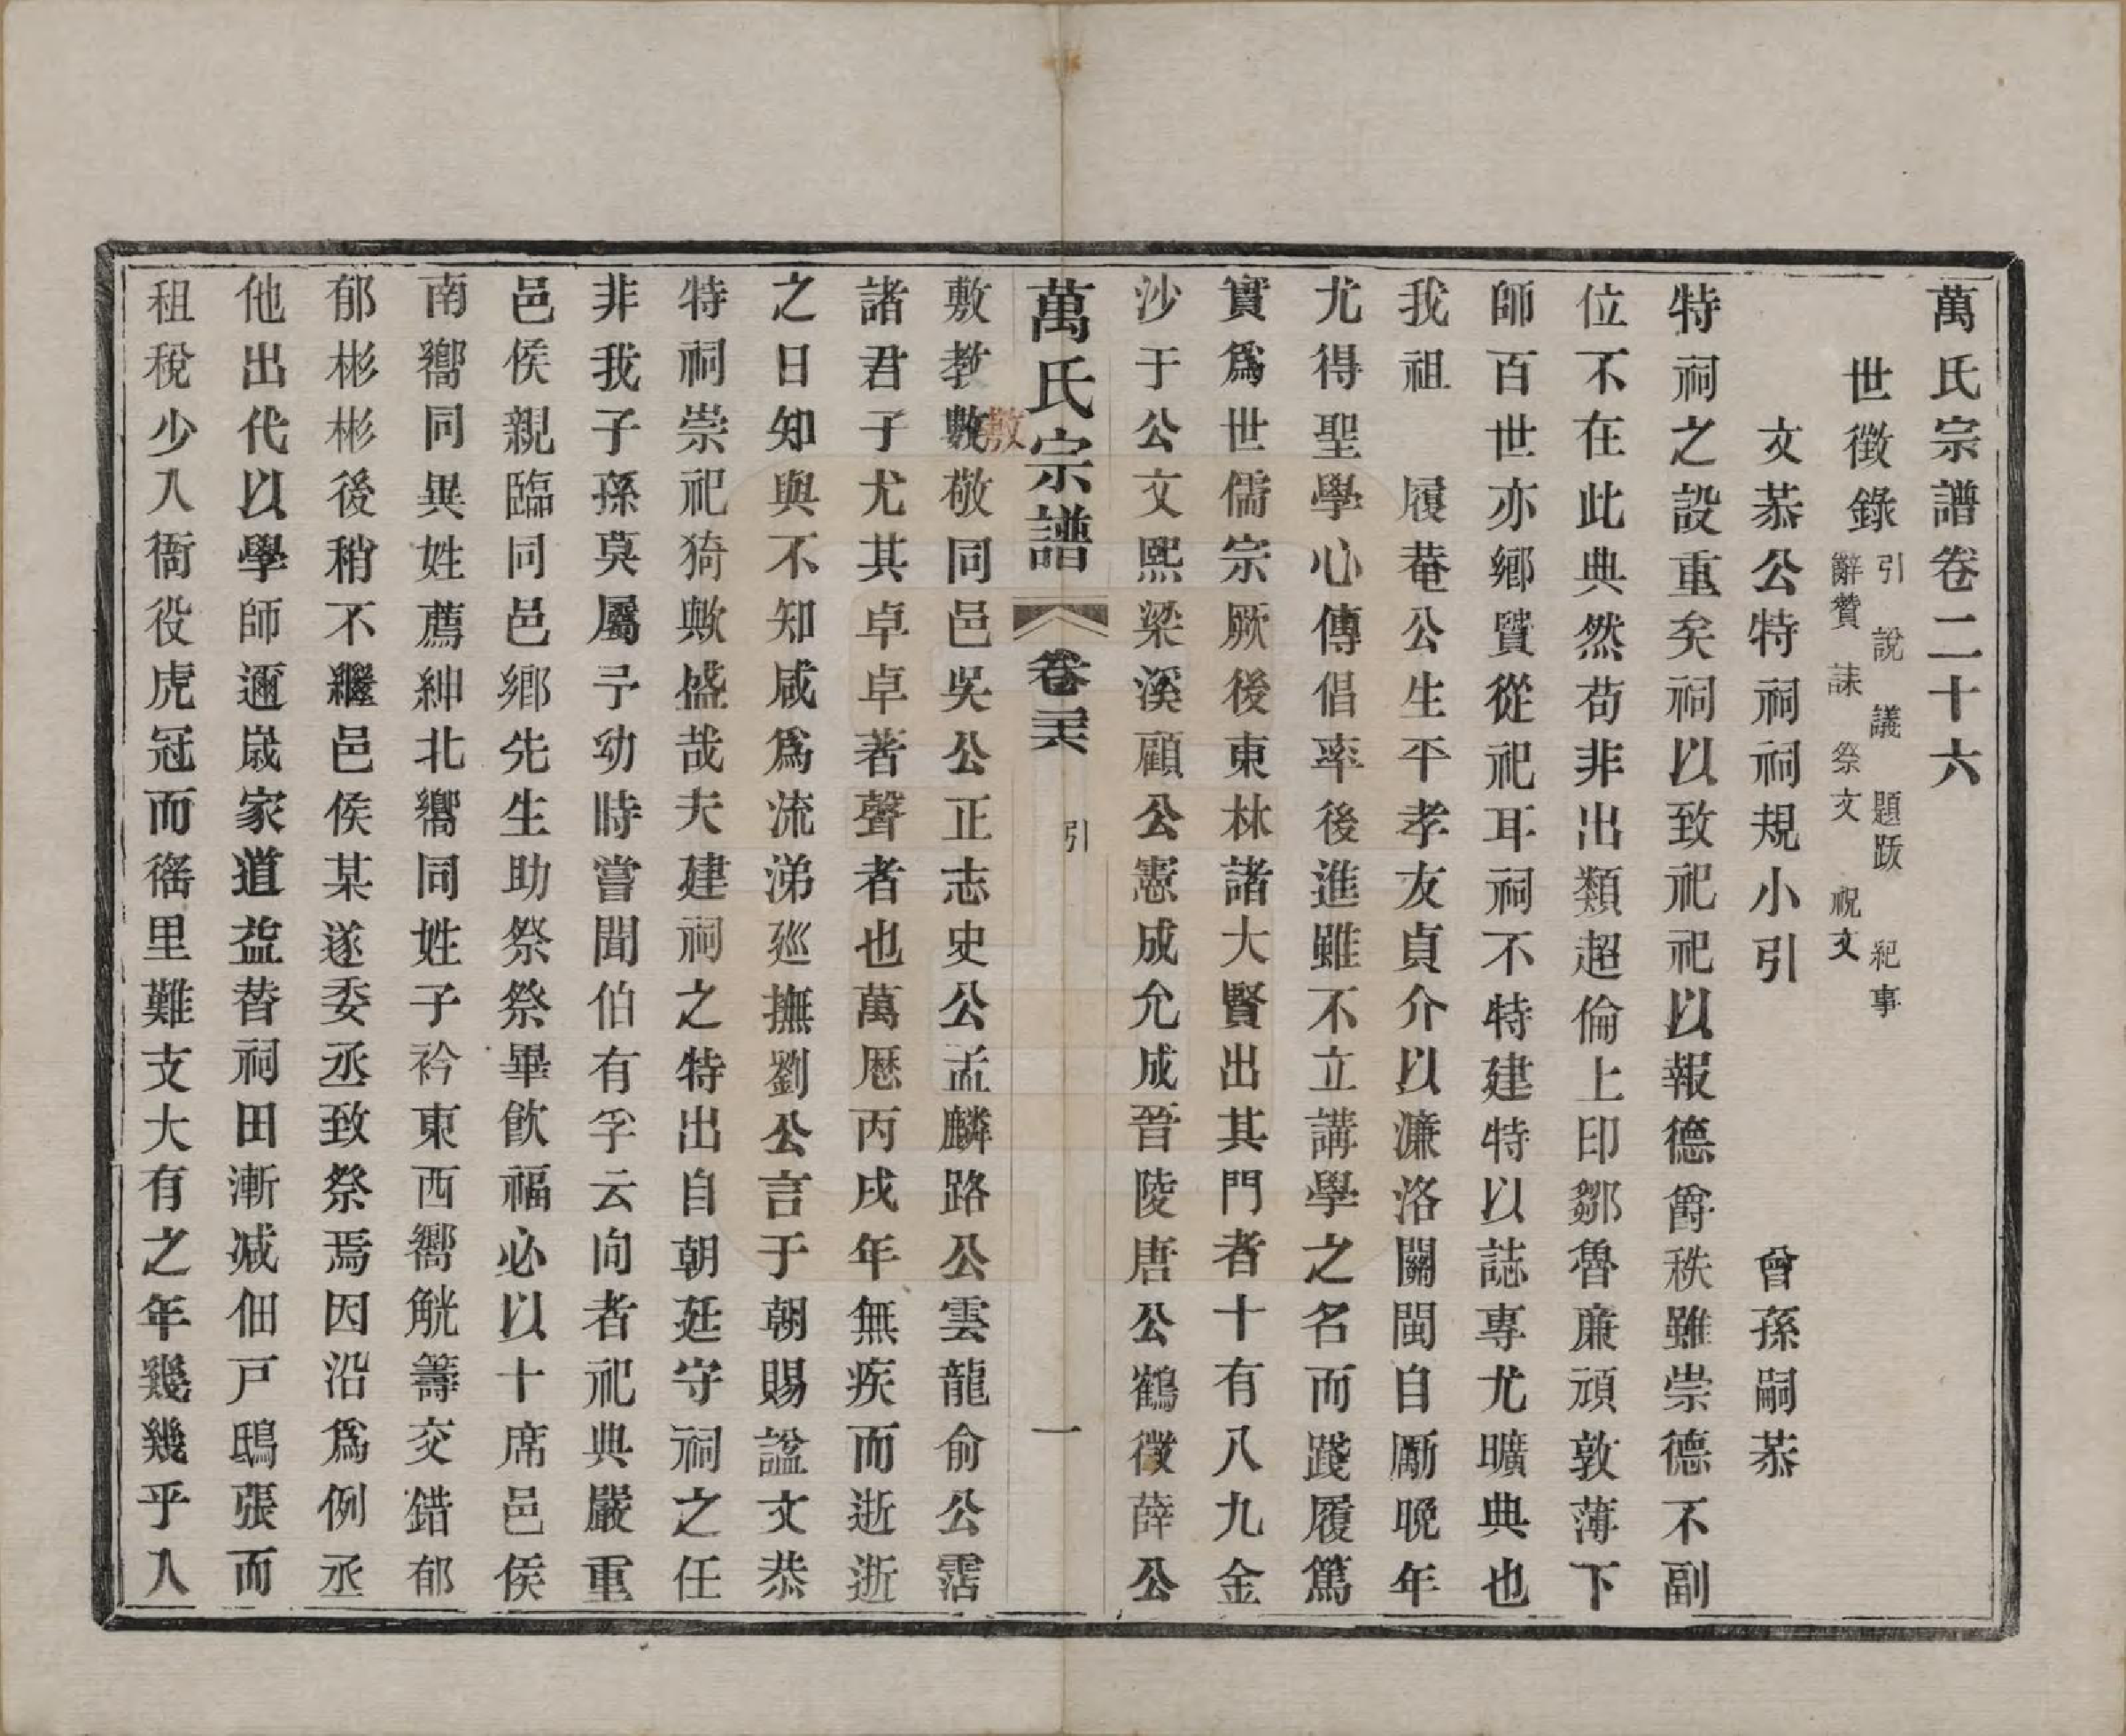 萬氏宗譜卷二十六
世徵錄
引 說 議 題跋 紀事
辭贊 誄 祭文 祝文
文恭公特祠祠規小引 曾孫嗣恭
特祠之設重矣祠以致祀祀以報德爵秩雖崇德不副
位不在此典然苟非出類超倫上印鄒魯廉頑敦薄下
師百世亦鄉賢從祀耳祠不特建特以誌專尤曠典也
我祖 履菴公生平孝友貞介以濂洛關閩自勵晚年
尤得聖學心傳倡率後進雖不立講學之名而踐履篤
實爲世儒宗厥後東林諸大賢出其門者十有八九金
沙于公文熙梁溪顧公憲成允成晉陵唐公鶴徵薛公
萬氏宗譜 卷二十六 引 一
敷教敷敬同邑吳公正志史公孟麟路公雲龍俞公霑
敷
諸君子尤其卓卓著聲者也萬厯丙戌年無疾而逝逝
之日知與不知咸爲流涕廵撫劉公言于朝賜諡文恭
特祠崇祀猗歟盛哉夫建祠之特出自朝廷守祠之任
非我子孫莫屬予幼時嘗聞伯有孚云向者祀典嚴重
邑侯親臨同邑鄉先生助祭祭畢飮福必以十席邑侯
南嚮同異姓薦紳北嚮同姓子衿東西嚮觥籌交錯郁
郁彬彬後稍不繼邑侯某遂委丞致祭焉因沿爲例丞
他出代以學師邇歲家道益替祠田漸减佃戸鴟張而
租稅少入衙役虎冠而徭里難支大有之年幾幾乎入